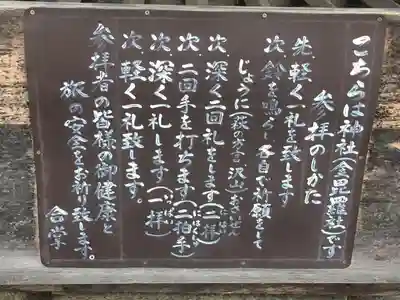 こちらは神社(金毘羅社)です
参拝のしかた
先、軽く一礼を致します
次、鈴を鳴らし各自で祈願をして
じょうに(萩の方言、沢山)
次、深く二回礼をします(二拝)
次、二回手を打ちます(二拍手)
次、深く一礼します(一拝)
次、軽く一礼致します。
参拝者の皆様の御健康と
旅の安全をお祈り致します。
合掌